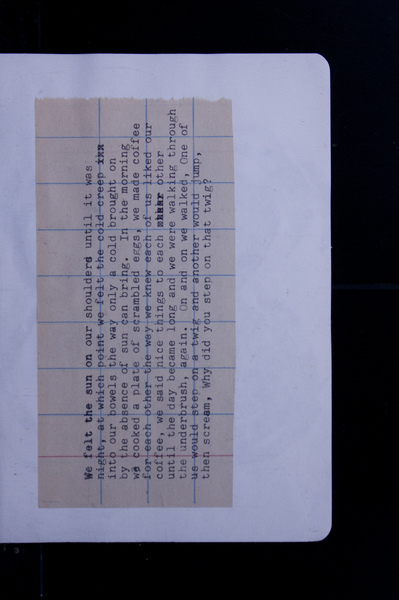 We felt the sun on our shoulders until it was
night, at which point we felt the cold creep
into our bowels the way only a cold brought on
by the absence of sun can bring. In the morning
we cooked a plate of scrambled eggs, we made coffee
for each other the way we knew each of us liked our
coffee, we said nice things to each other
until the day became long and we were walking through
the underbrush, again. On and on we walked, One of
us would step on a twig and another would jump,
then scream, Why did you step on that twig?